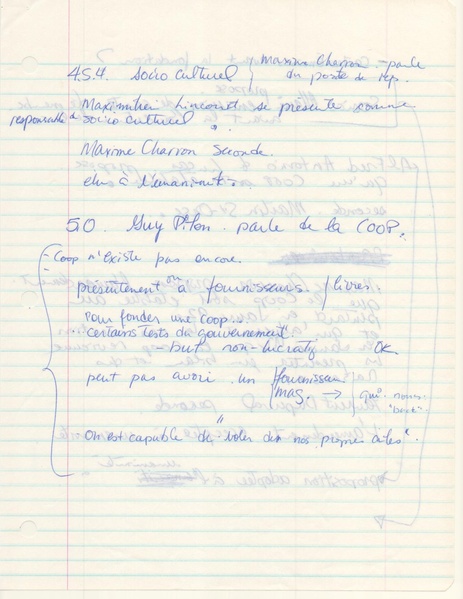 4.5.4. Socio culturel / Maxime Charron - parle
du poste de rep.
Maximilien se présente comme
responsable de socio culturel.
Maxime Charron seconde.
élus à l'unanimité.
5.0 Guy Pilon. parle de la COOP.
- Coop n'existe pas encore.
présentement on a fournisseurs. / livres.
Pour fonder une coop.
certains tests du gouvernement
- but non-lucratif OK
peut pas avoir un fournisseur
mag. → qui nous
"On est capable de voler de nos propres ailes".
proposition adoptée à